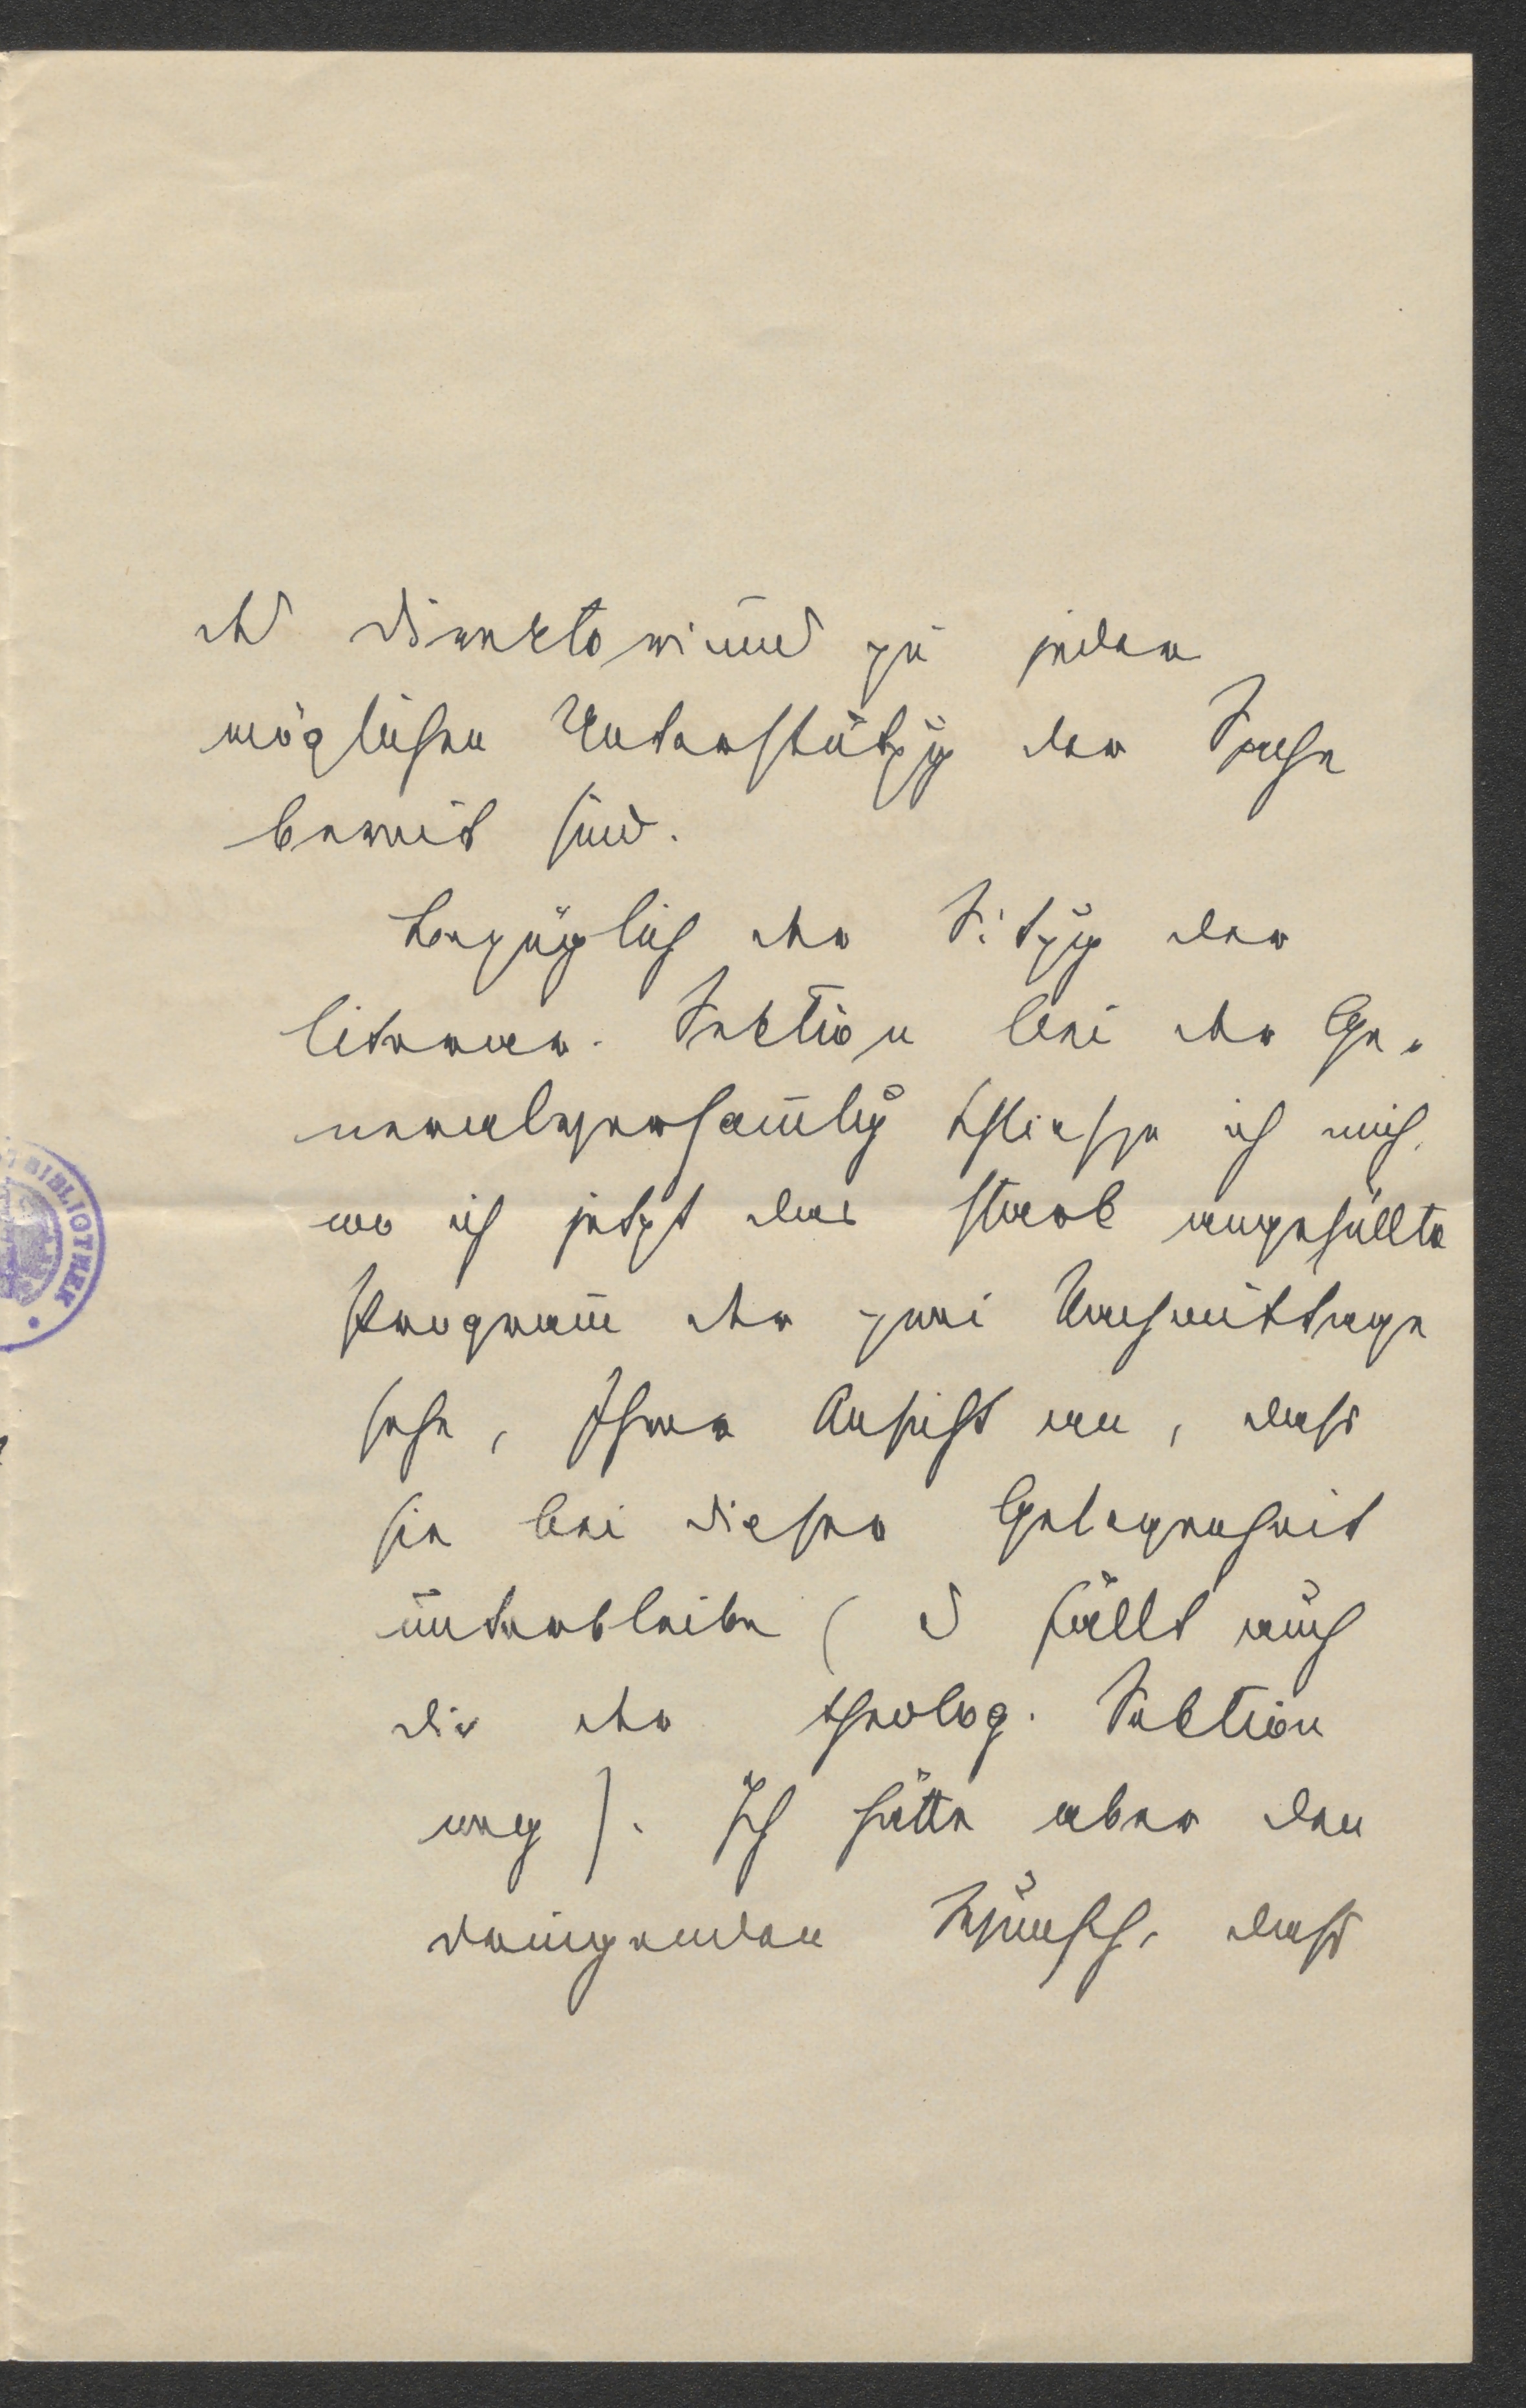 des Direktoriums zu jeder
möglichen Unterstützg der Sache
bereit sind.
Bezüglich der Sitzg der
literar. Sektion bei der Ge-
neralversamlg schliesse ich mich,
wo ich jetzt das stark angefüllte
Program der zwei Nachmittage
sehe, Ihrer Ansicht an, dass
sie bei dieser Gelegenheit
unterbleibe (es fällt auch
die der theolog. Sektion
weg). Ich hätte aber den
dringenden Wunsch, dass
BIBLIOTHEK